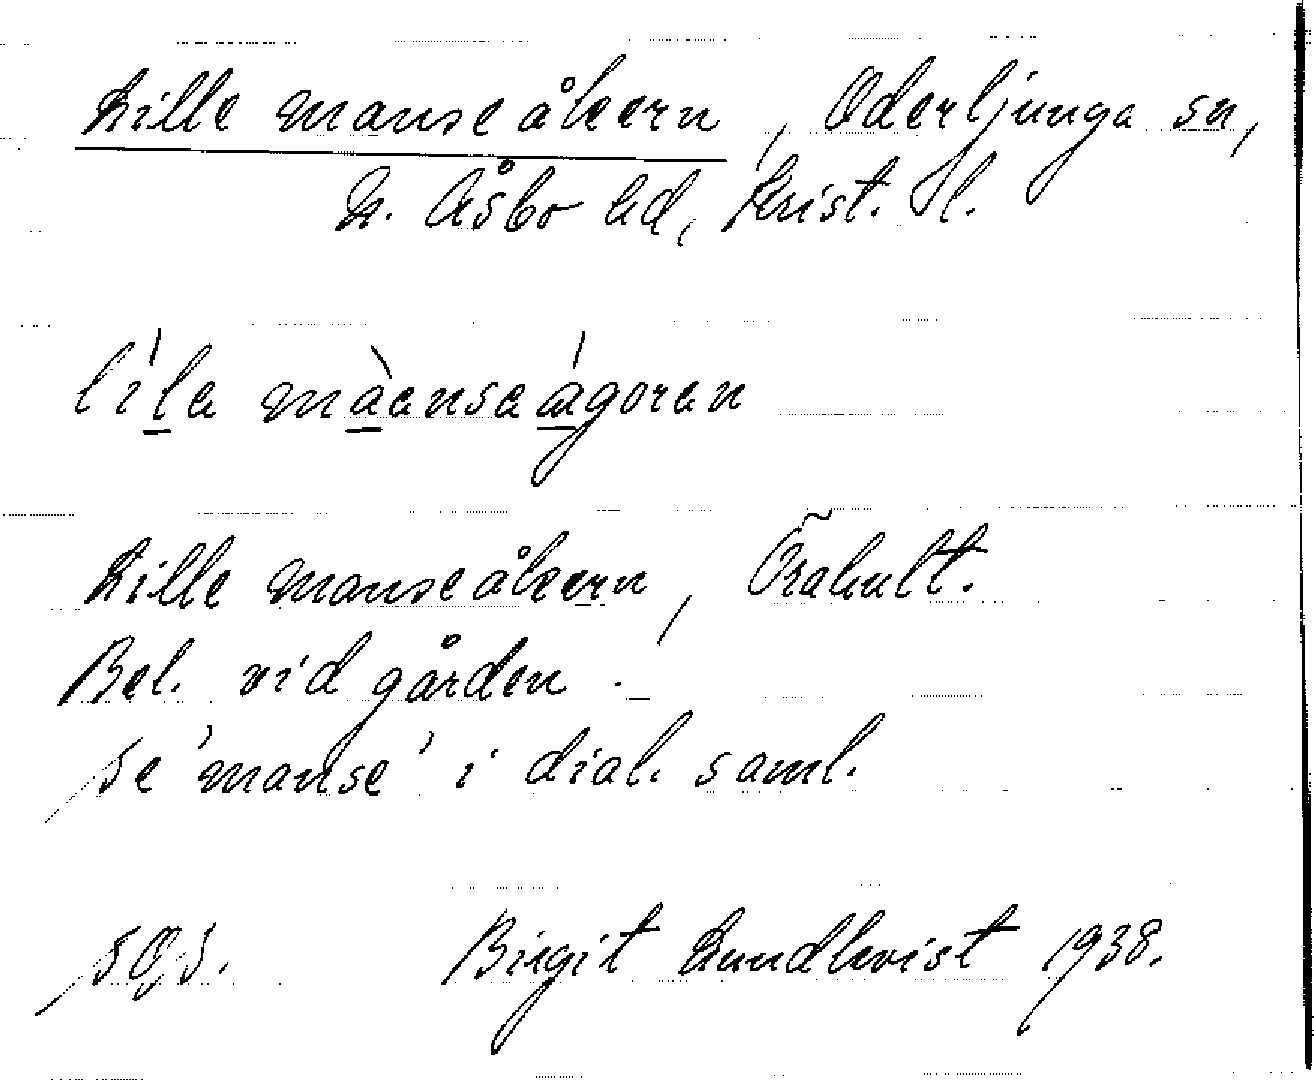 Lille manseåkern, Oderljunga sn,
N. Åsbo hd, Krist. l.
lìla màansaágoran
Lille manseåkern, Örahult.
Bel. vid gården.
Se 'manse' i dial. saml.
Birgit Lundkvist 1938.